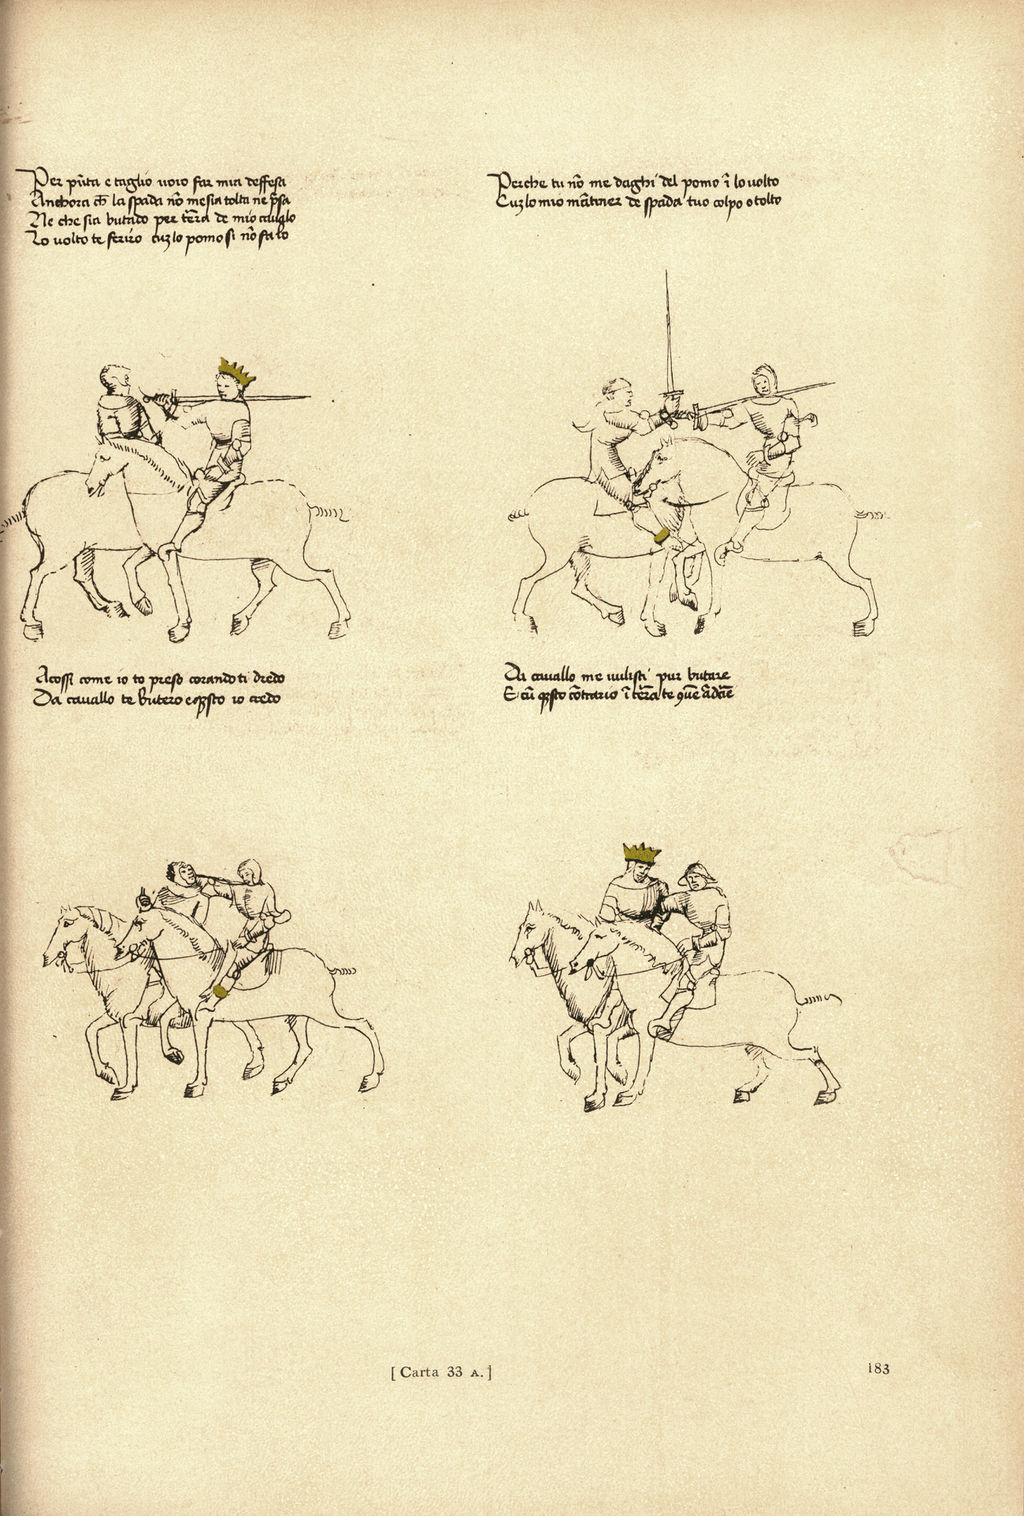 Per pũta e taglio voio far mia deffesa
Anchora ch̃ la spada nõ me sia tolta ne p̃sa
Ne che sia butado per tẽra de mio cavalo
Lo volto te feriro cuz lo pomo si nõ falo
Perche tu nõ me daghi del pomo ĩ lo volto
Cuz lo mio mãtiner de spada tuo colpo o tolto
Acossi come io to preso corando ti dredo
Da cavallo te butero e q̃sto io credo
Da cavallo me vulisti pur butare
E cũ q̃sto cõtrario ĩ tẽra te
[Carta 33 A.]
183